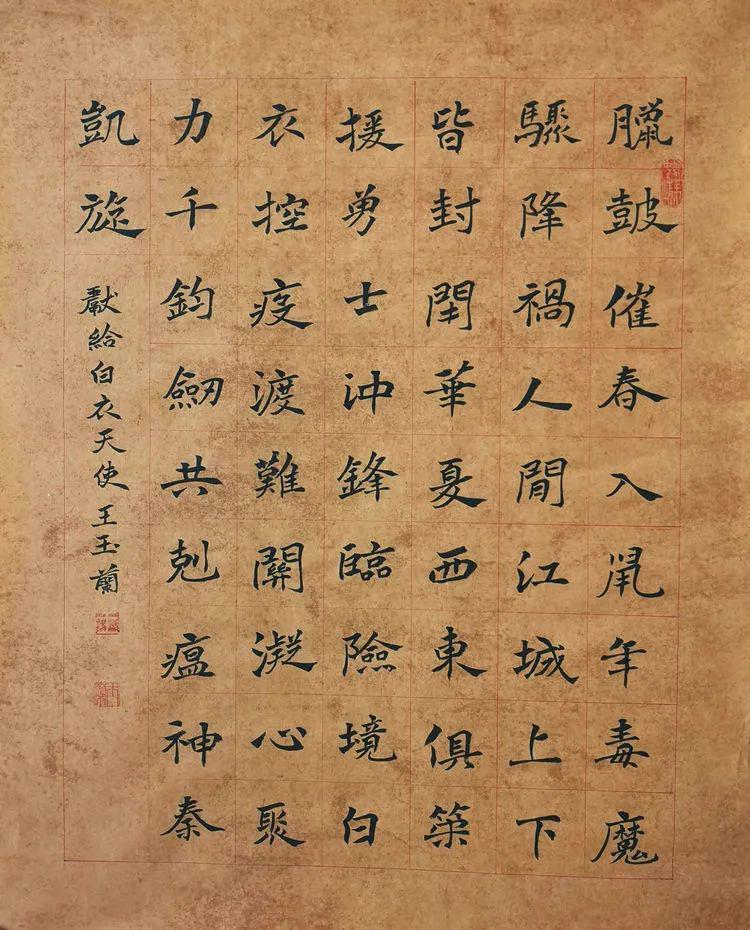 臘皷催春入鼠年毒魔
驟降禍人閒江城上下
皆封閉華夏西東俱築
援勇士沖鋒臨險境白
衣控疫渡難關凝心聚
力千鈞劒共剋瘟神奏
凱旋
獻給白衣天使王玉蘭